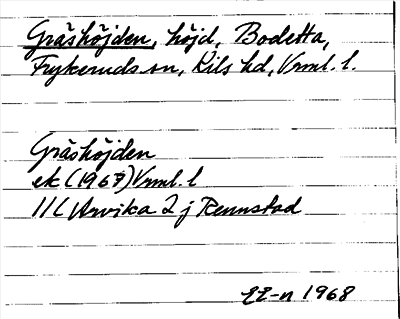 Gråshöjden, höjd, Bodetta,
Frykeruds sn, Kils hd, Vrml. l.
Gråshöjden
ek (1967) Vrml. l
11C Arvika 2 j Rennstad
1968